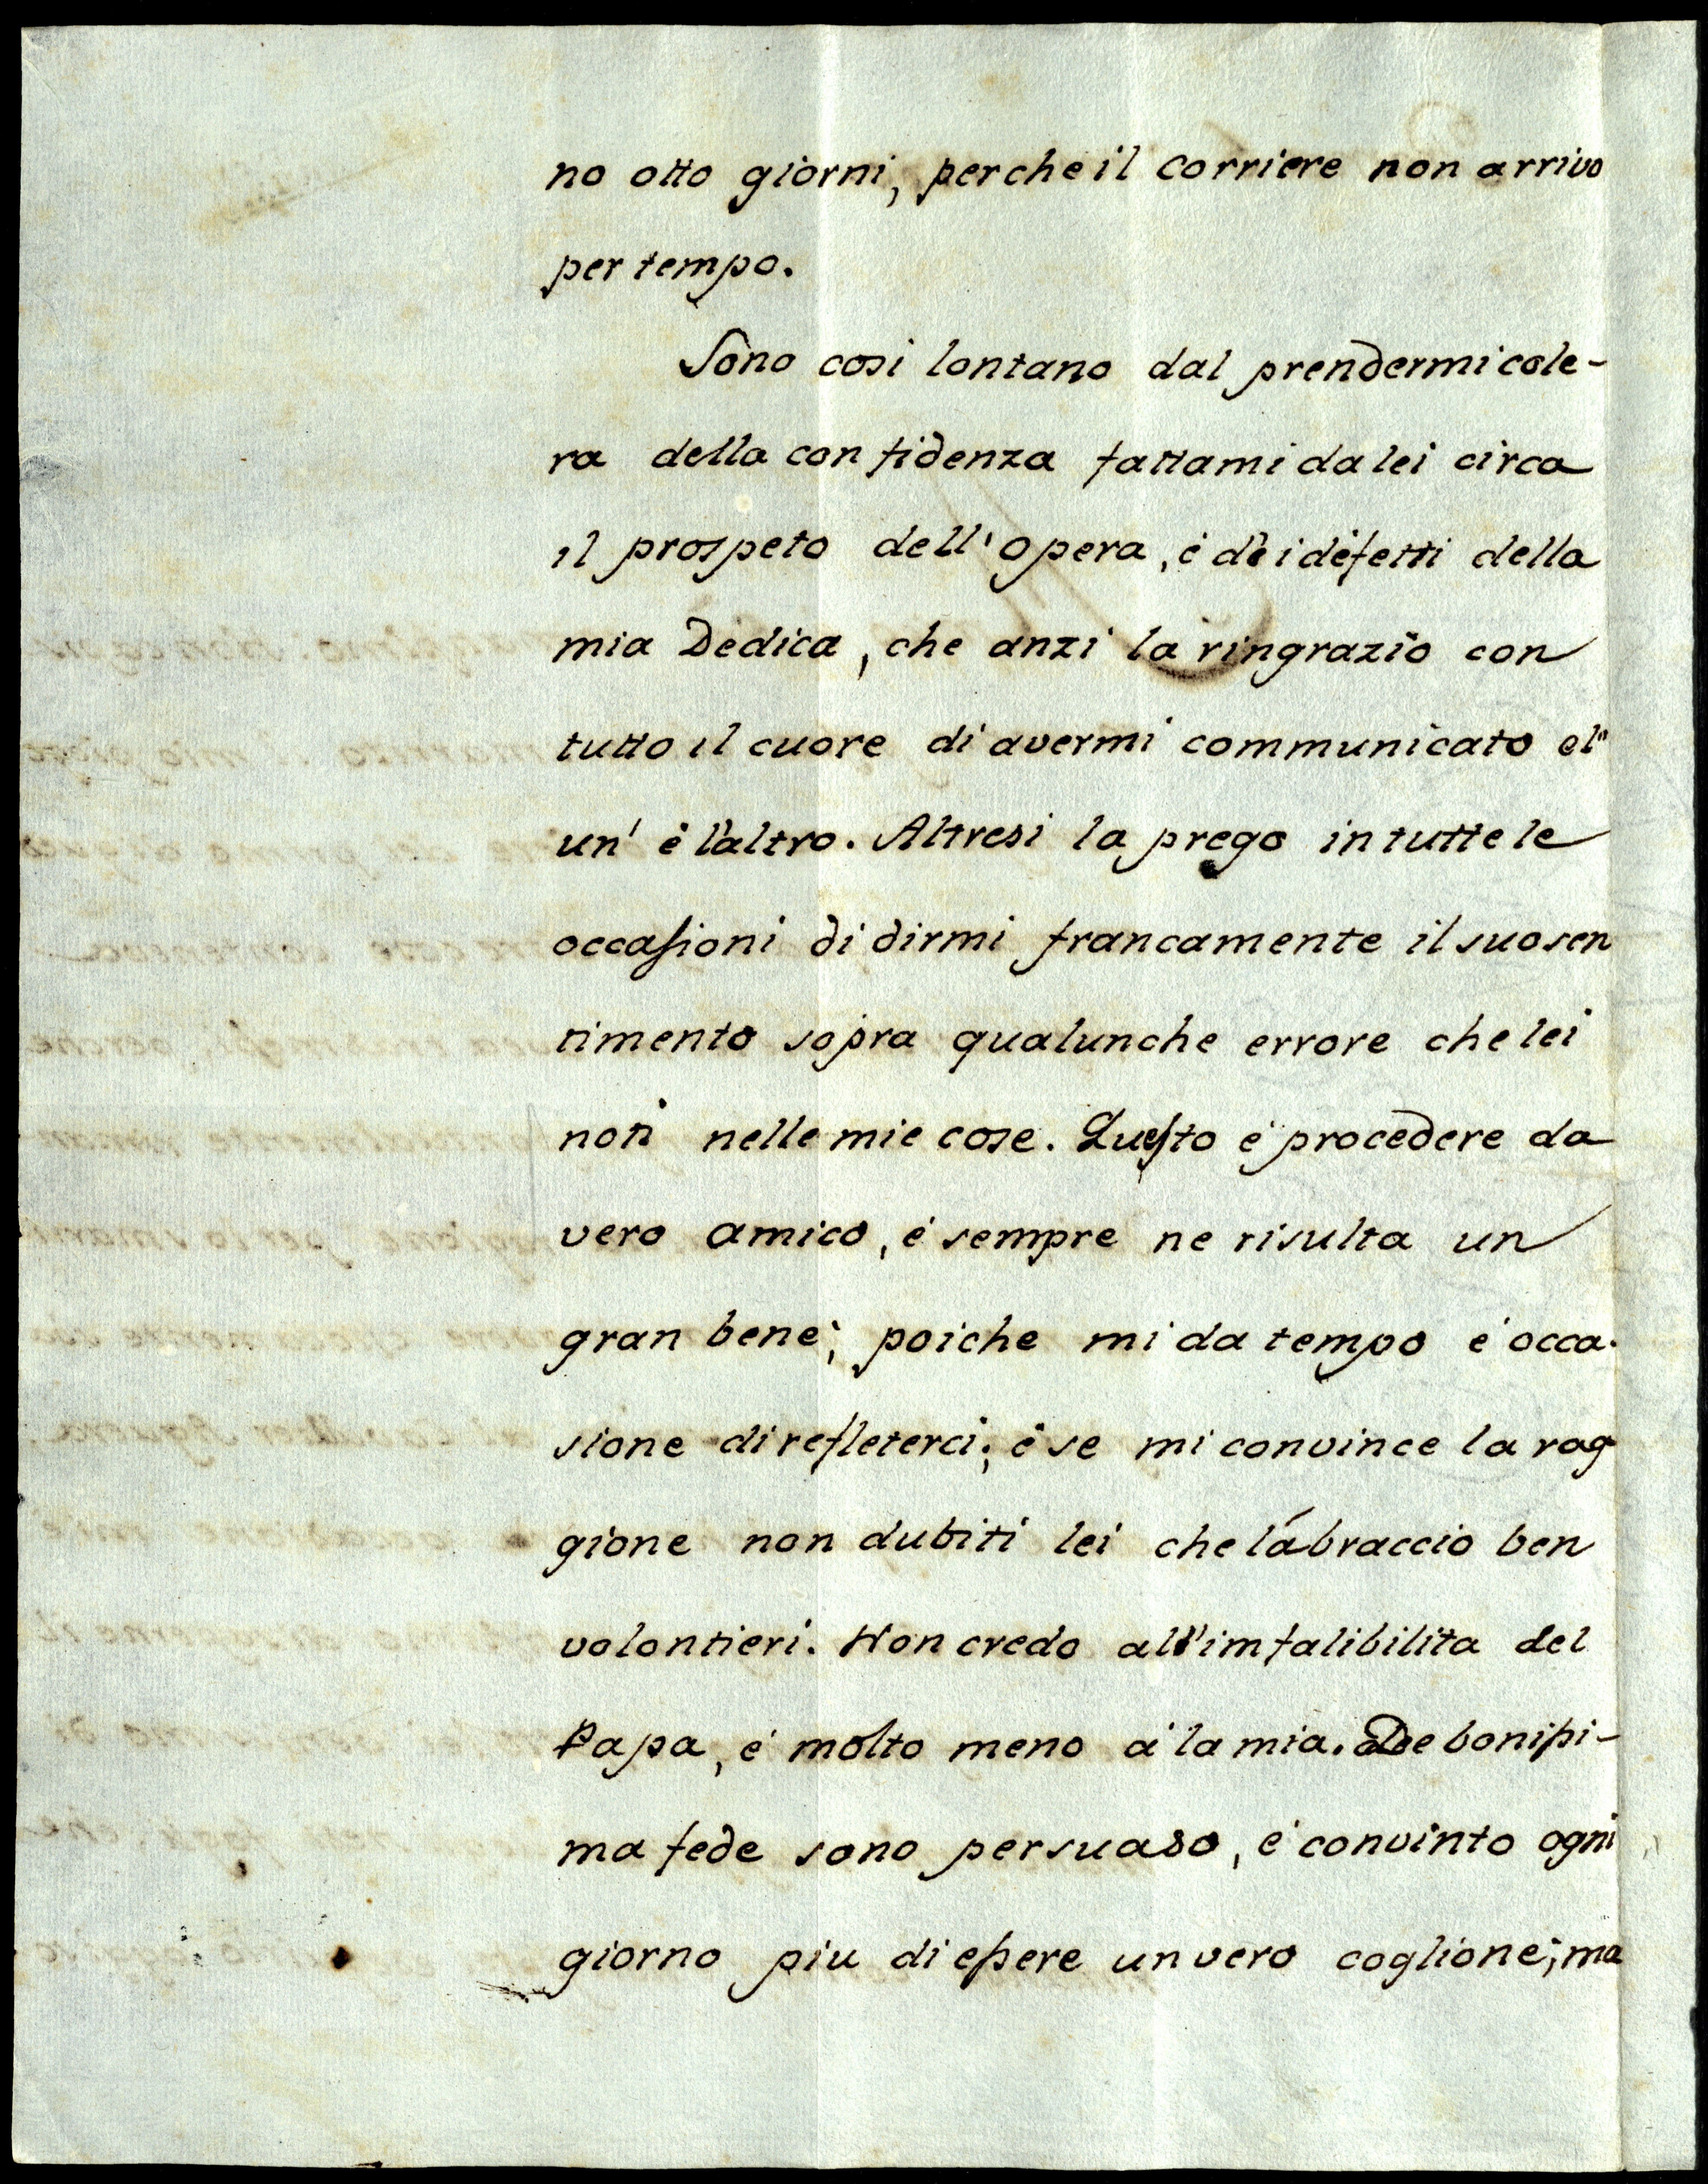 no otto giorni, perche il corriere non arrivo
per tempo.
Sono cosi lontano dal prendermi cole-
ra della confidenza fattami da lei circa
il prospeto dell'opera, é dei defetti della
mia Dedica, che anzi la ringrazio con
tutto il cuore di avermi communicato el'
un' é l'altro. Altresi la prego in tutte le
occasioni di dirmi francamente il suo sen
timento sopra qualunche errore che lei
noti nelle mie cose. Questo é procedere da
vero amico, é sempre ne risulta un
gran bene; poiche mi da tempo é occa-
sione di refleterci; é se mi convince la rag
gione non dubiti lei che l'ábraccio ben
volontieri. Non credo all'imfalibilita del
Papa, é molto meno á la mia. De bonissi-
ma fede sono persuaso, é convinto ogni
giorno piu di essere un vero coglione; ma